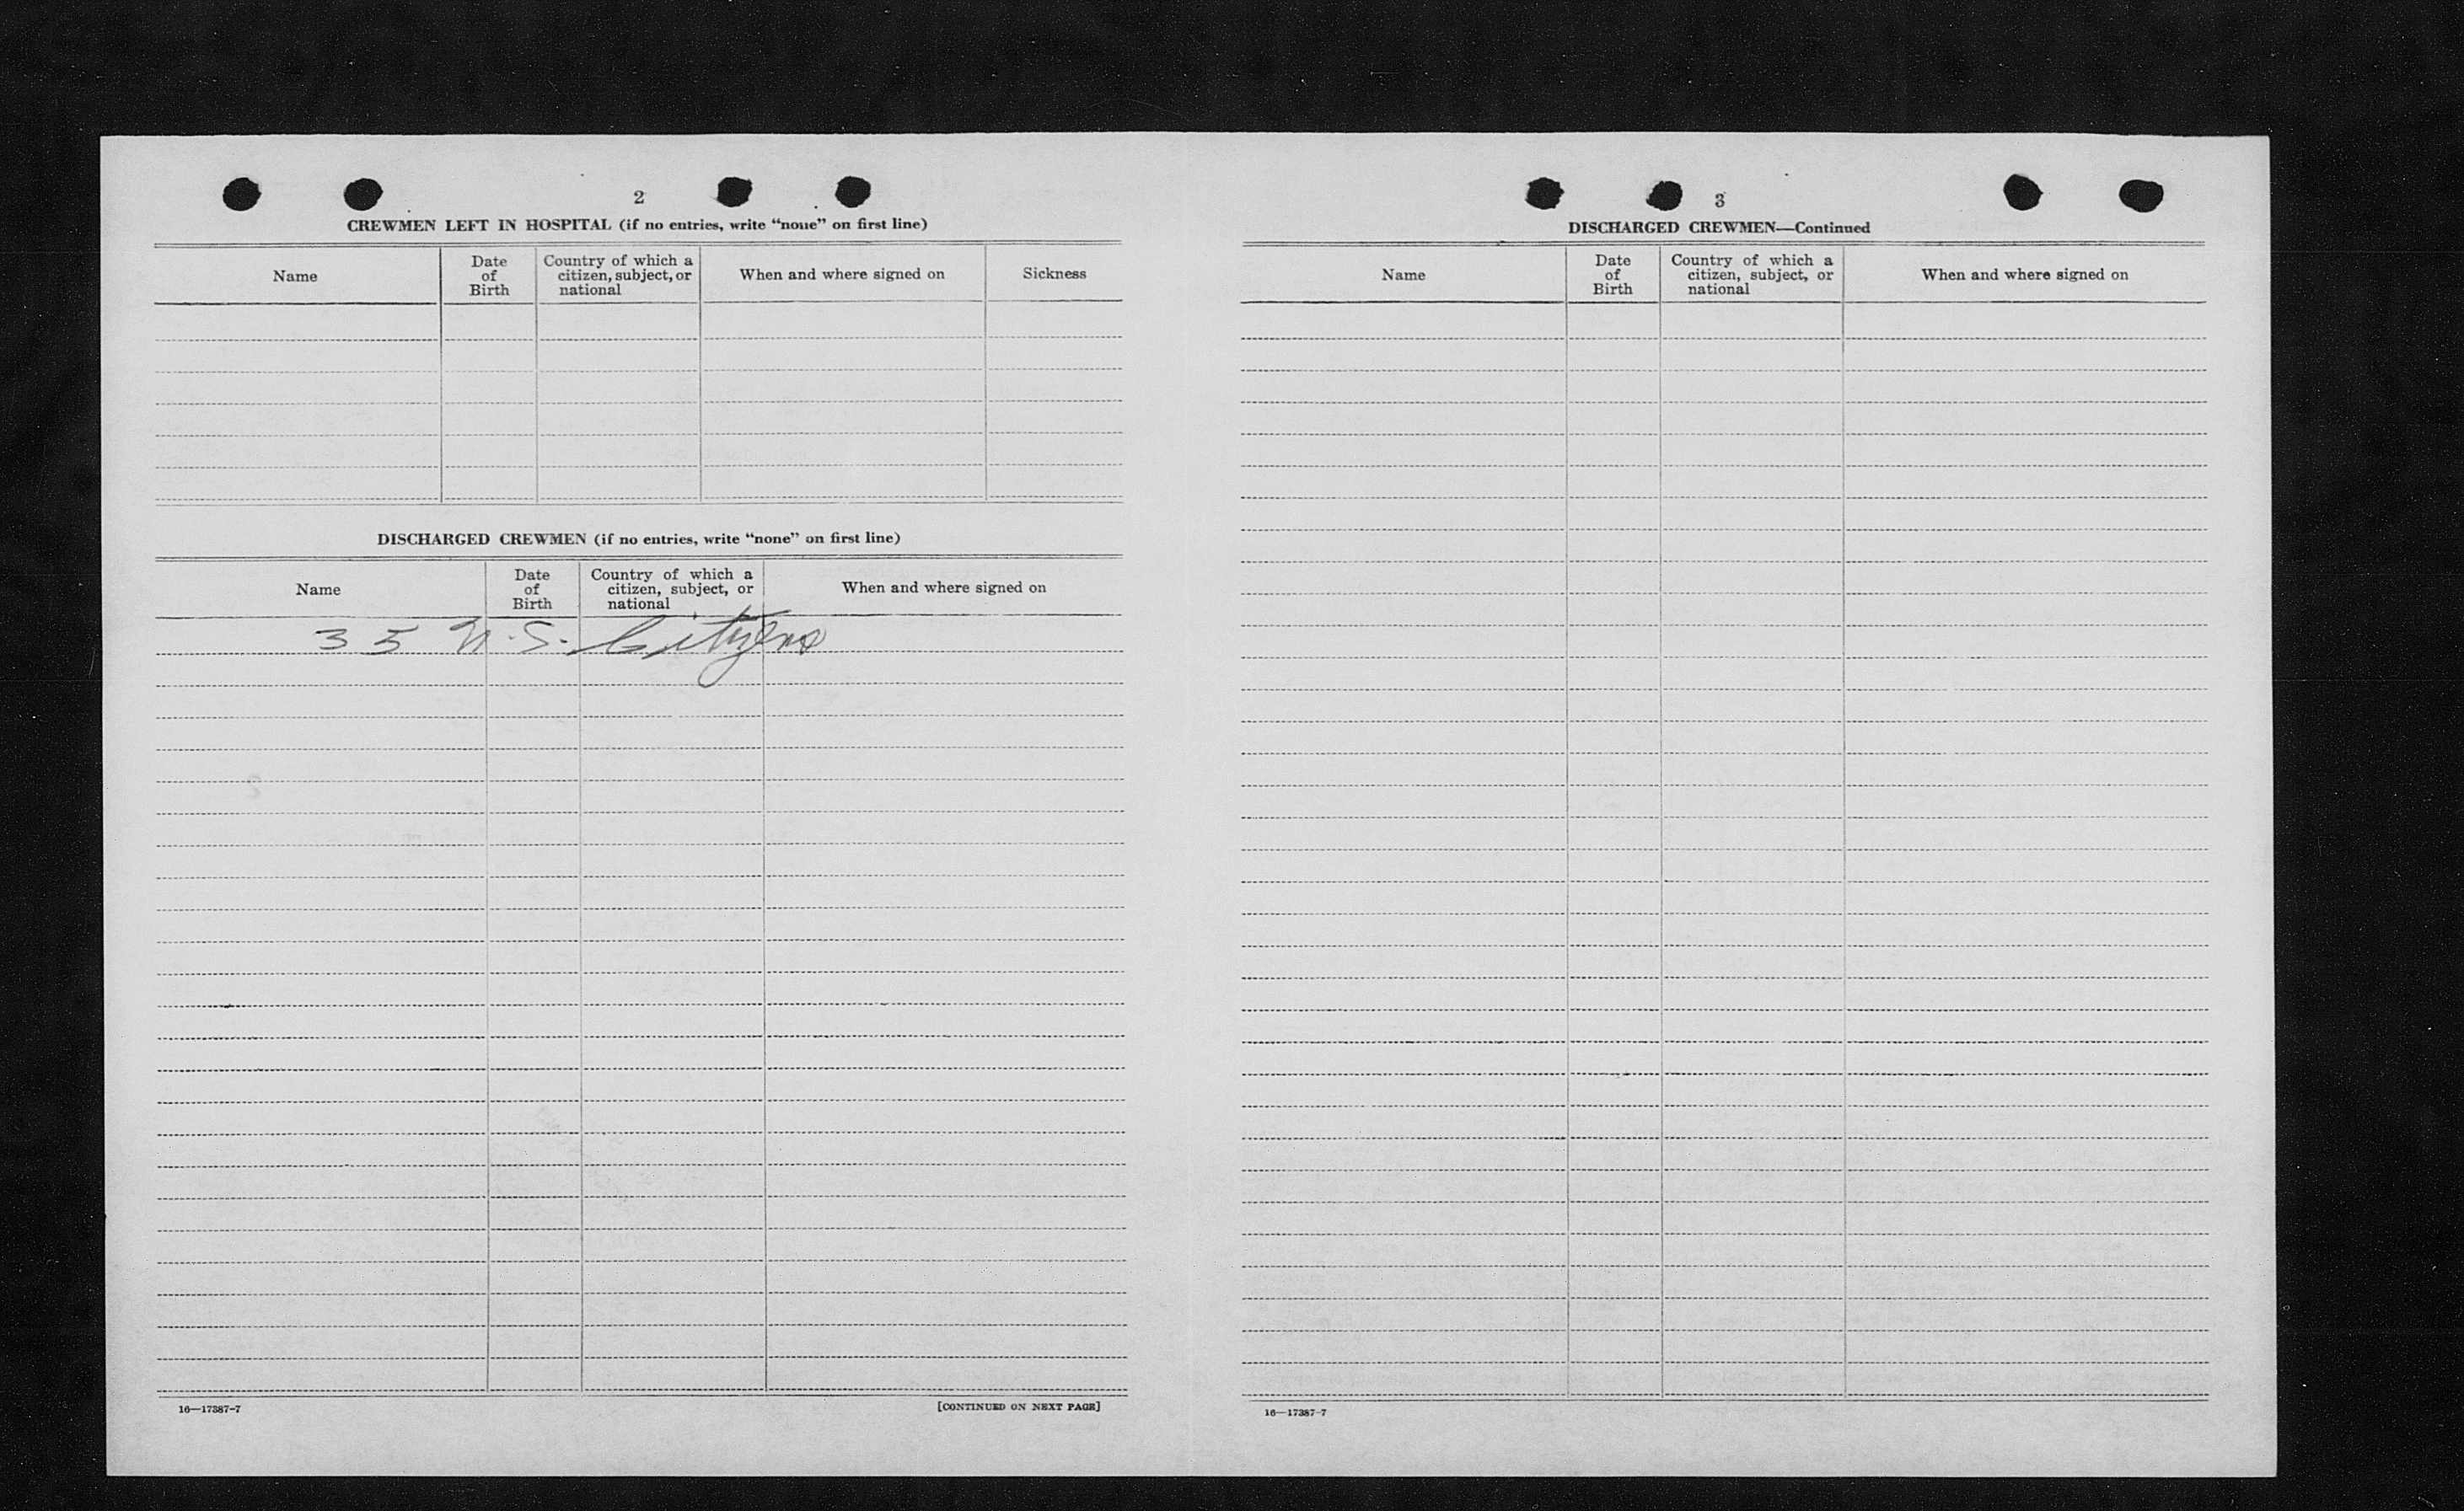 2
CREWMEN LEFT IN HOSPITAL (if no entries, write “none” on first line)
Name
Date of Birth
Country of which a citizen, subject, or national
When and where signed on
Sickness
DISCHARGED CREWMEN (if no entries, write “none” on first line)
Name
Date of Birth
Country of which a citizen, subject, or national
When and where signed on
35 U.S. Citizens
16—17387-7
[CONTINUED ON NEXT PAGE]
3
DISCHARGED CREWMEN—Continued
Name
Date of Birth
Country of which a citizen, subject, or national
When and where signed on
16—17387-7